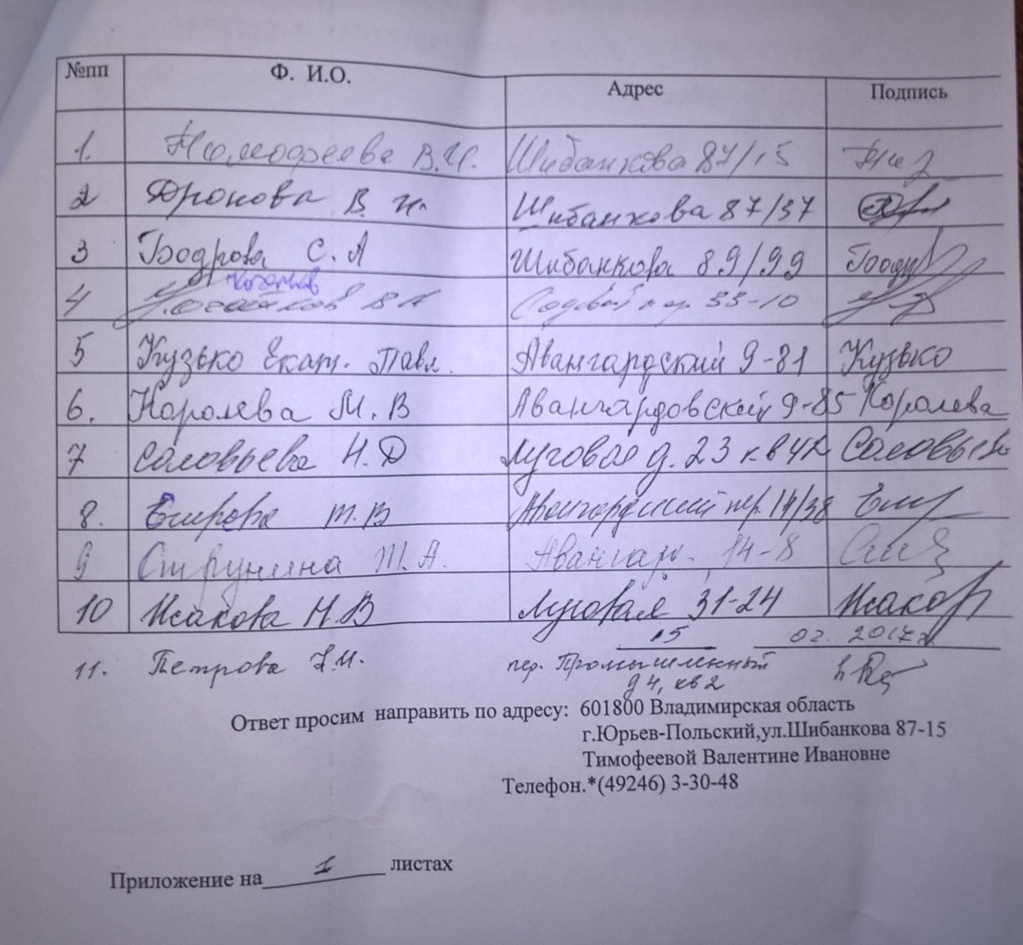 №пп Ф. И.О. Адрес Подпись
1. Тимофеева В.И. Шибанкова 87/15
2 Дронова В. И. Шибанкова 87/37
3 Бодрова С. А Шибанкова 89/99
4 В А Садовый пер. 33-10
5 Кузько Екат. Павл. Авангардский 9-81 Кузько
6. Королева М. В Авангардовский 9-85 Королева
7 Соловьева Н. Д Луговая д. 23 кв 42 Соловьева
8. Т. В Авангардский пер. 14/38
9 Струнина Т. А. Авангард. 14-8
10 Исакова Н. В Луговая 31-24 Исакова
15 02. 2017г
11. Петрова пер. Промышленный
д 4, кв 2
Ответ просим направить по адресу: 601800 Владимирская область
г.Юрьев-Польский,ул.Шибанкова 87-15
Тимофеевой Валентине Ивановне
Телефон.*(49246) 3-30-48
Приложение на 1 листах